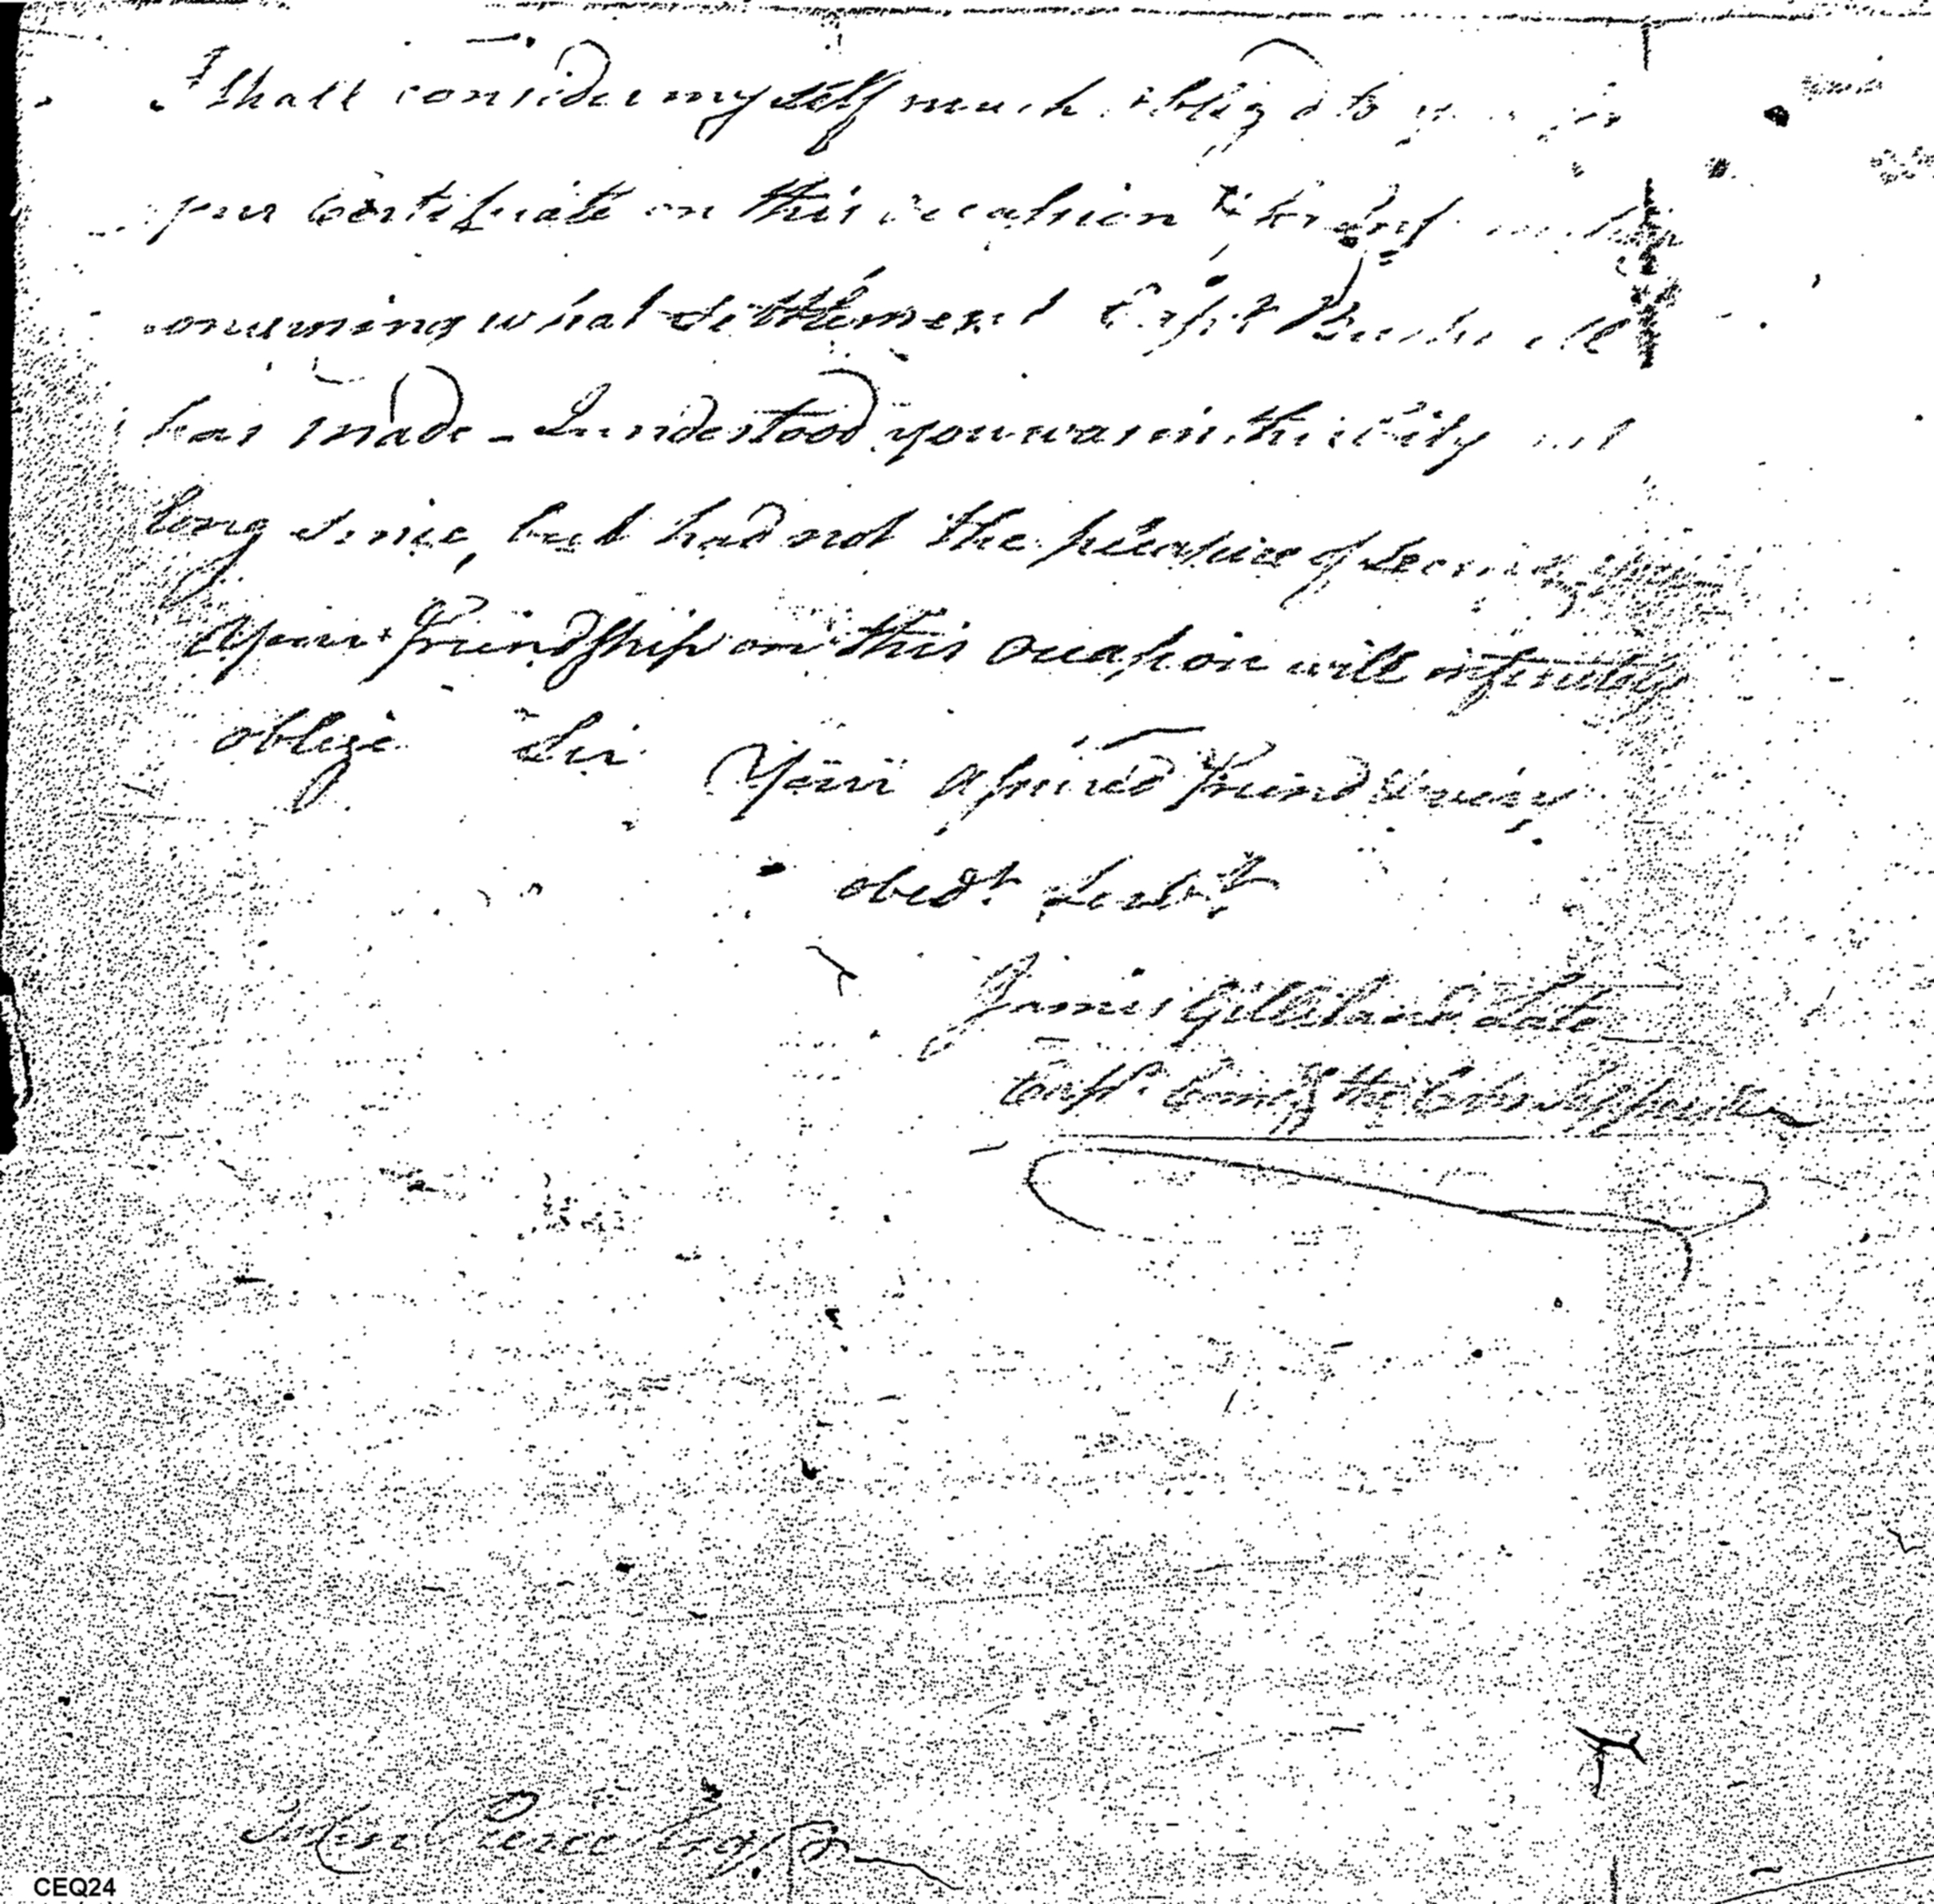 I shall consider myself much obligd to you for
your Certificate on this occasion
concerning what settlement Capt Bushnell
has made - I understood you was in this City not
long since, but had not the pleasure of seeing you
Your friendship on this occasion will infinitely
oblige Sir Your assured friend & very
obedt Servt
James Gilliland Late
Capt. Comg the Corps Sappers
John Pierce Esqr
CEQ24